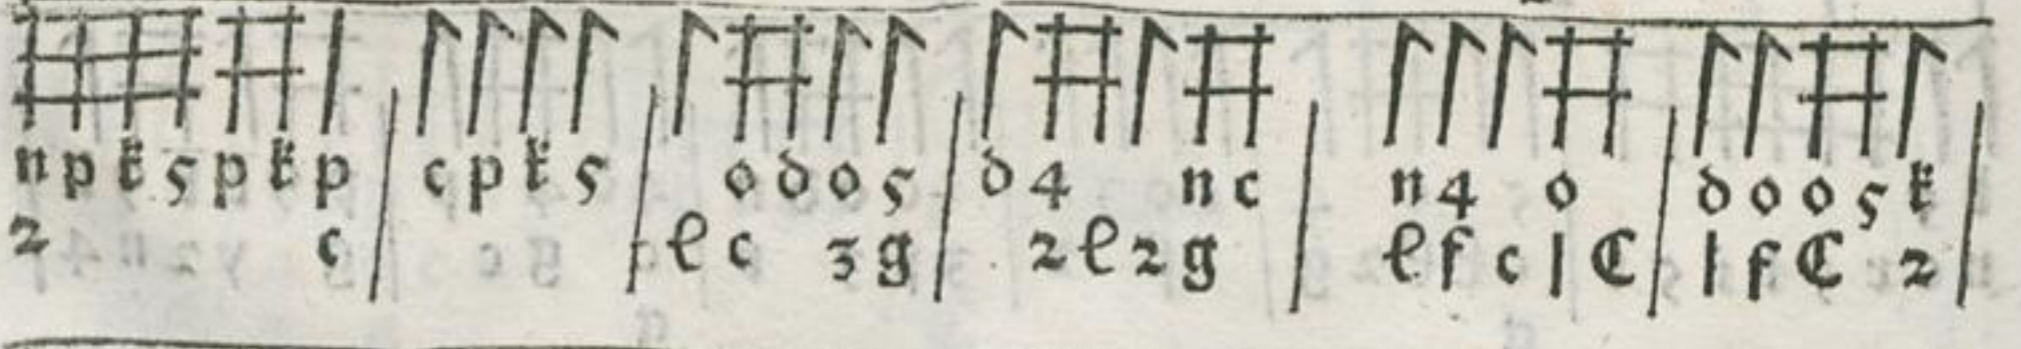 n p k 5 p k p | c p k 5 | o d o 5 | d 4 n c | n 4 o | d o o 5 k |
2 c | | e c 3 g | 2 e 2 g | e f c 1 C | 1 f C 2 |